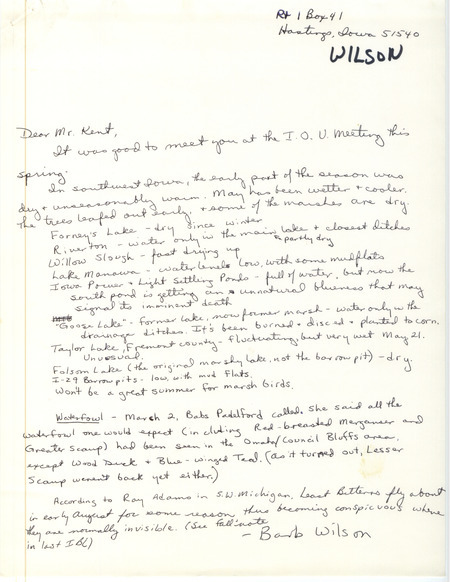 Rt 1 Box 41
Hastings, Iowa 51540
WILSON
Dear Mr. Kent,
It was good to meet you at the I.O.U. Meeting this
spring.
In southwest Iowa, the early part of the season was
dry + unseasonably warm. May has been wetter + cooler.
The trees leafed out early. + some of the marshes are dry.
Forney's Lake - dry since winter
Riverton - water only in the main lake + closest ditches
Willow Slough - fast drying up + partly dry
Lake Manawa - water levels low, with some mudflats
Iowa Power + Light Settling Ponds - full of water, but now the
south pond is getting an unnatural blueness that may
signal its imminent death
"Goose Lake" - former lake, now former marsh - water only in the
drainage ditches. It's been burned + disced + planted to corn.
Taylor Lake, Fremont county - fluctuating, but very wet May 21.
Unusual.
Folsom Lake (the original marshy lake, not the barrow pit) - dry.
I-29 Barrow pits - low, with mud flats.
Won't be a great summer for marsh birds.
Waterfowl - March 2, Babs Padelford called. She said all the
waterfowl one would expect (including Red-breasted Merganser and
Greater Scaup) had been seen in the Omaha/Council Bluffs area,
except Wood Duck + Blue-winged Teal. (as it turned out, Lesser
Scaup weren't back yet either.)
According to Ray Adams in S.W. Michigan, Least Bitterns fly about
in early August for some reason, thus becoming conspicuous where
they are normally invisible. (See Fall note
in last IBL)
- Barb Wilson